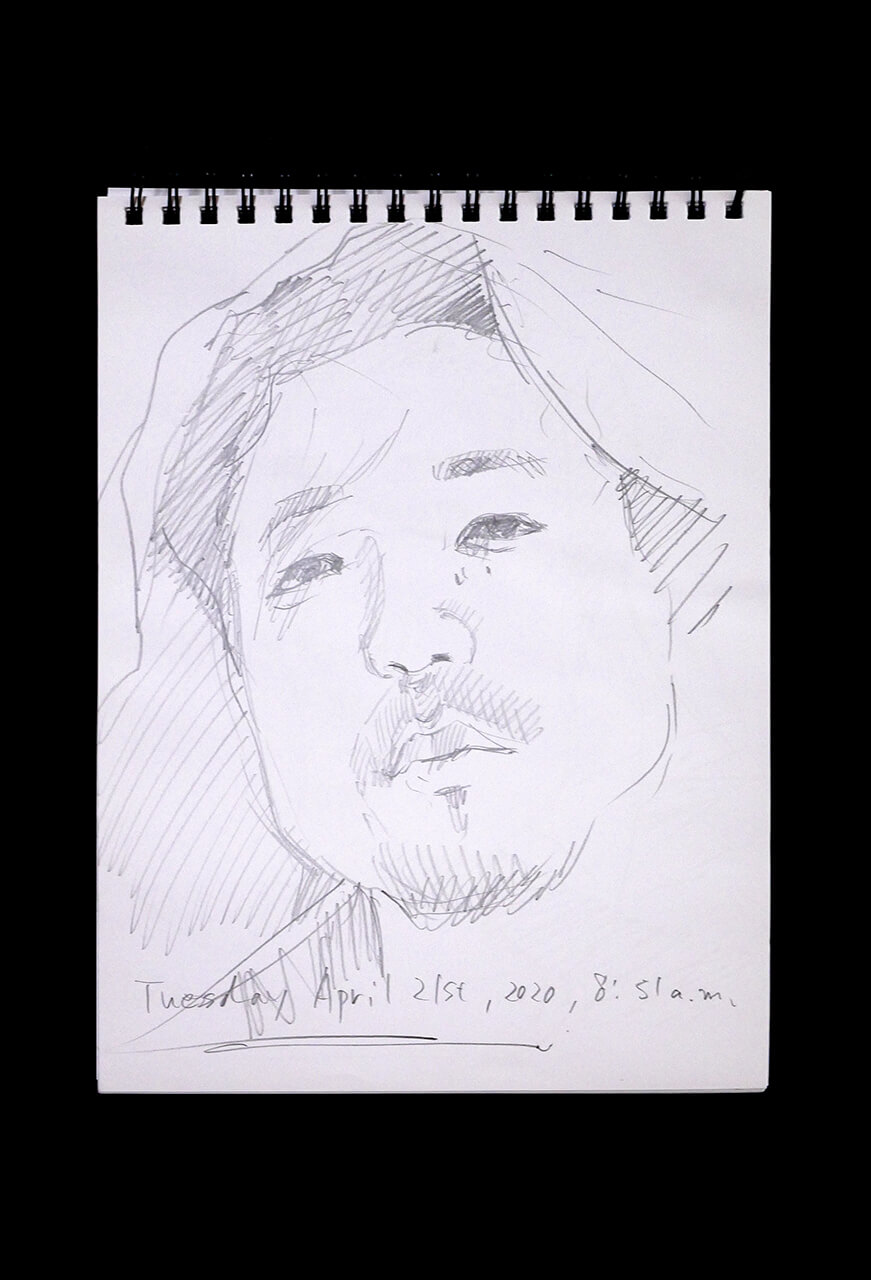 Tuesday April 21st, 2020, 8:51 a.m.